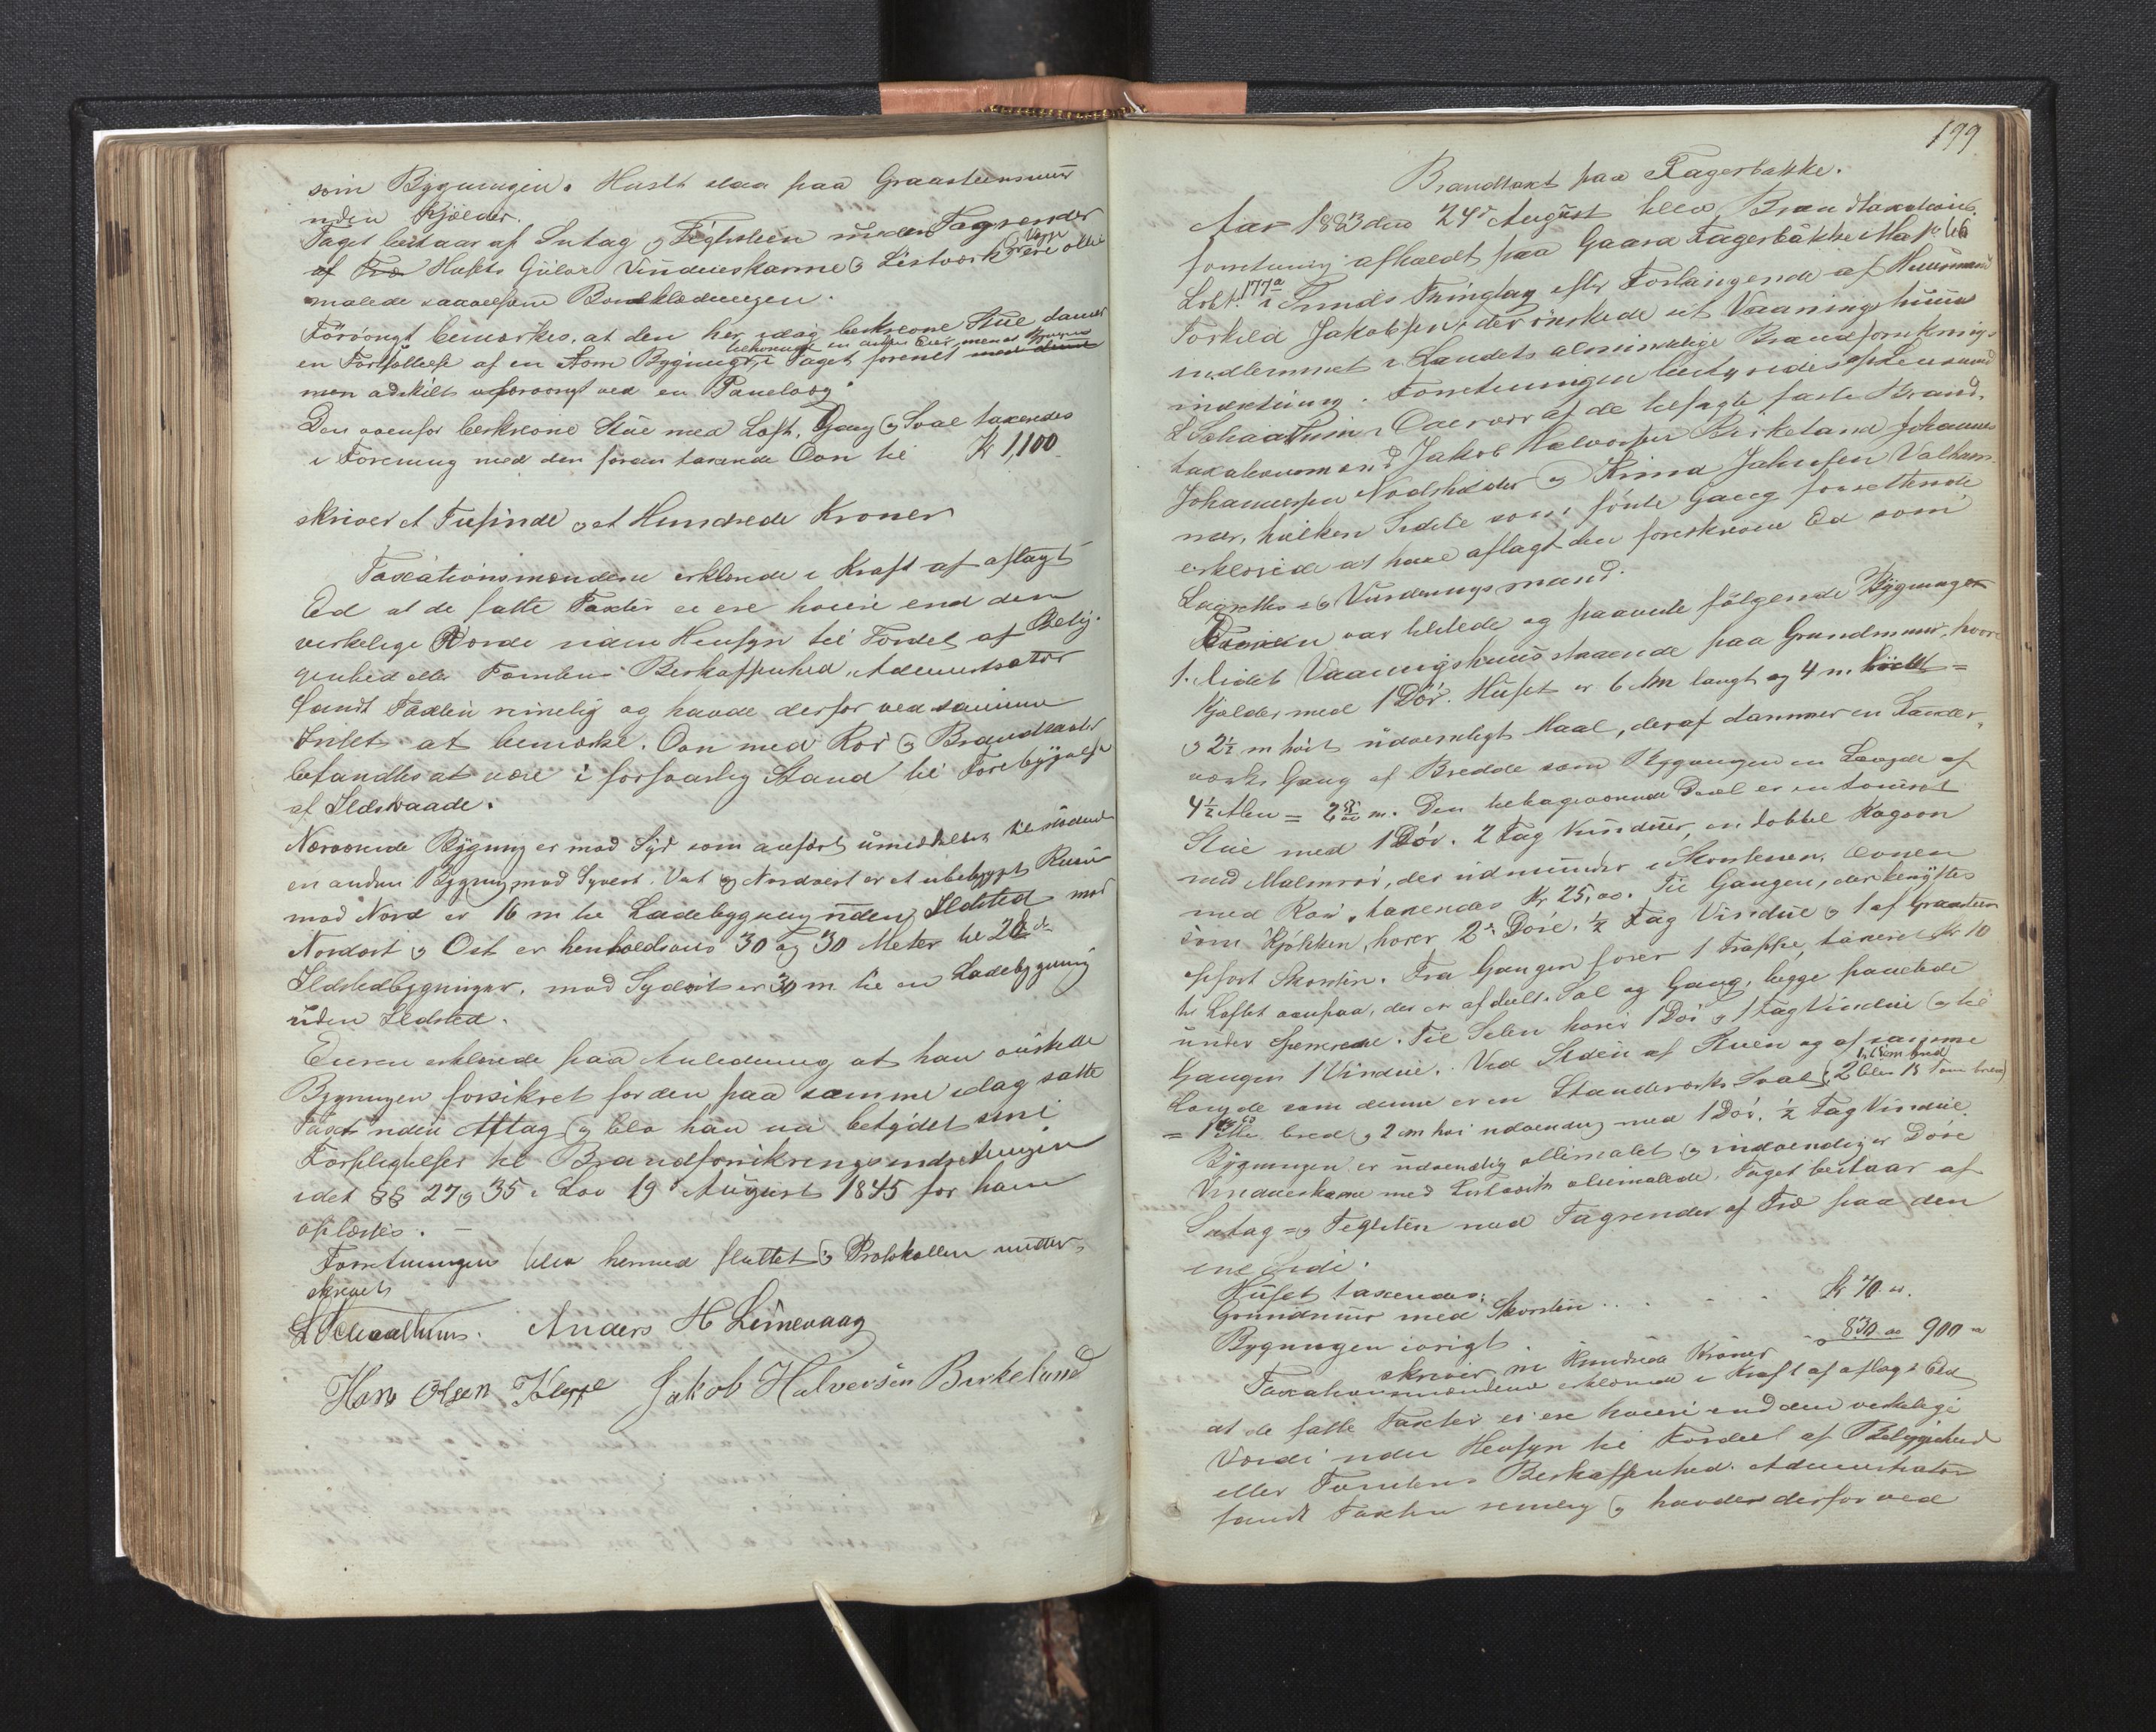 som Bygningen. Huset staa paa Graasteensmuur
uden Kjælder.
Taget bestaar af Sutag og Teglsteen uden Tagrender
af Træ Husets Gulve Vindueskarme og Listværk Vægge ere olie
malede saavelsom Bordklædningen.
Forøvrigt bemærkes, at den her idag beskrevne Stue danner
en Fortsættelse af en Bygning, tilhørende en anden Eier, i Taget forenet med denne
men adskilt forøvrigt ved en Panelvæg
Den ovenfor beskrevne Stue med Loft, Gang og Sval taxeredes
i Forening med den foran taxerede Ovn til Kr 1,100
skriver et Tusinde og et Hundrede Kroner
Taxationsmændene erklærede i Kraft af aflagt
Ed at de satte Taxter ei ere høiere end den
virkelige Værdi uden Hensyn til Fordel af Belig-
genhed eller Tomtens Beskaffenhed. Administrator
fandt Taxten rimelig og havde derfor ved samme
Intet at bemærke. Ovn med Rør og Brandredskaber
befandtes at være i forsvarlig Stand til Forebyggelse
af Ildsvaade.
Nærværende Bygning er mod Syd som anført umiddelbar tilstødende
en anden Bygning mod Sydvest. Vest og Nordvest er et ubebygget Rum
mod Nord er 16 m til Ladebygning uden Ildsted mod
Nordost og Ost er henholdsvis 30 og 30 Meter til 2de
Ildstedbygninger, mod Sydost er 30 m til en Ladebygning
uden Ildsted.
Eieren erklærede paa Anledning at han ønskede
Bygningen forsikret for den paa samme idag satte
Taxt uden Aftag og blev han nu betydet sine
Forpligtelser til Brandforsikringsindretningen
idet §§ 27 og 35 i Lov 19 August 1845 for ham
oplæstes. —
Forretningen blev hermed sluttet og Protokollen under-
skrevet
L Schaathun. Anders H Limevaag
Hans Olsen Kleppe Jakob Halversen Birkeland
199
Brandtaxt paa Fagerbakke.
Aar 1883 den 24de August blev Brandtaxations-
forretning afholdt paa Gaard Fagerbakke Ma No 66
Lobe No 177a i Sunds Thinglag efter Forlangende af Huusmand
Torkild Jakobsen, der ønskede et Vaaningshuus
indlemmet i Landets almindelige Brandforsikrings-
indretning. Forretningen bestyredes af Lensmand
L Schaathun i Overvær af de tilsagte faste Brand-
taxationsmænd Jakob Halvorsen Birkeland Johannes
Johannessen Nodskeider og Jahnsen Valham-
mer, hvilken Sidste som første Gang forrettende
erklærede at have aflagt den foreskrevne Ed som
Lagrettes- og Vurderingsmand.
Eieren var tilstede og paaviste følgende Bygninger
1. Lidet Vaaningshuus staaende paa Grundmuur, hvori
Kjælder med 1 Dør. Huset er 6 m langt og 4 m bredt
og 2½ m høit udvendigt Maal, deraf danner en Stander-
værks Gang af Bredde som Bygningen en Længde af
4½ Alen = 2 m. Den tilbageværende Deel er en tømret
Stue med 1 Dør. 2 Fag Vinduer, en dobbel Kagovn
med Malmrør, der udmunder i Skorstenen. Ovnen
med Rør, taxeredes Kr 25,00. Til Gangen, der benyttes
som Kjøkken, hører 2de Døre, ½ Fag Vindue og 1 af Graasteen
opført Skorsten. Fra Gangen fører 1 Trappe, taxeret Kr 10
til Loftet ovenpaa, der er afdeelt i Sal og Gang, begge panelede
under Spærrene. Til Salen hører 1 Dør og 1 Fag Vindue og til
Gangen 1 Vindue. Ved Siden af Stuen og af samme
Længde som denne er en Standerværks Sval
bred og 2 m høi udvendig med 1 Dør, ½ Fag Vindue.
Bygningen er udvendig oliemalet og indvendig er Døre
Vindueskarme med Listværk oliemalede. Taget bestaar af
Sutag og Teglsten med Tagrender af Træ paa den
ene Side.
Huset taxeredes:
Grundmuur med Skorsten . . . Kr 70 00
Bygningen iøvrigt . . . 830 00 900 00
skriver ni Hundrede Kroner
Taxationsmændene erklærede i Kraft af aflagt Ed
at de satte Taxter ei ere høiere end den virkelige
Værdi uden Hensyn til Fordeel af Beliggenhed
eller Tomtens Beskaffenhed. Administrator
fandt Taxten rimelig og havde derfor ved